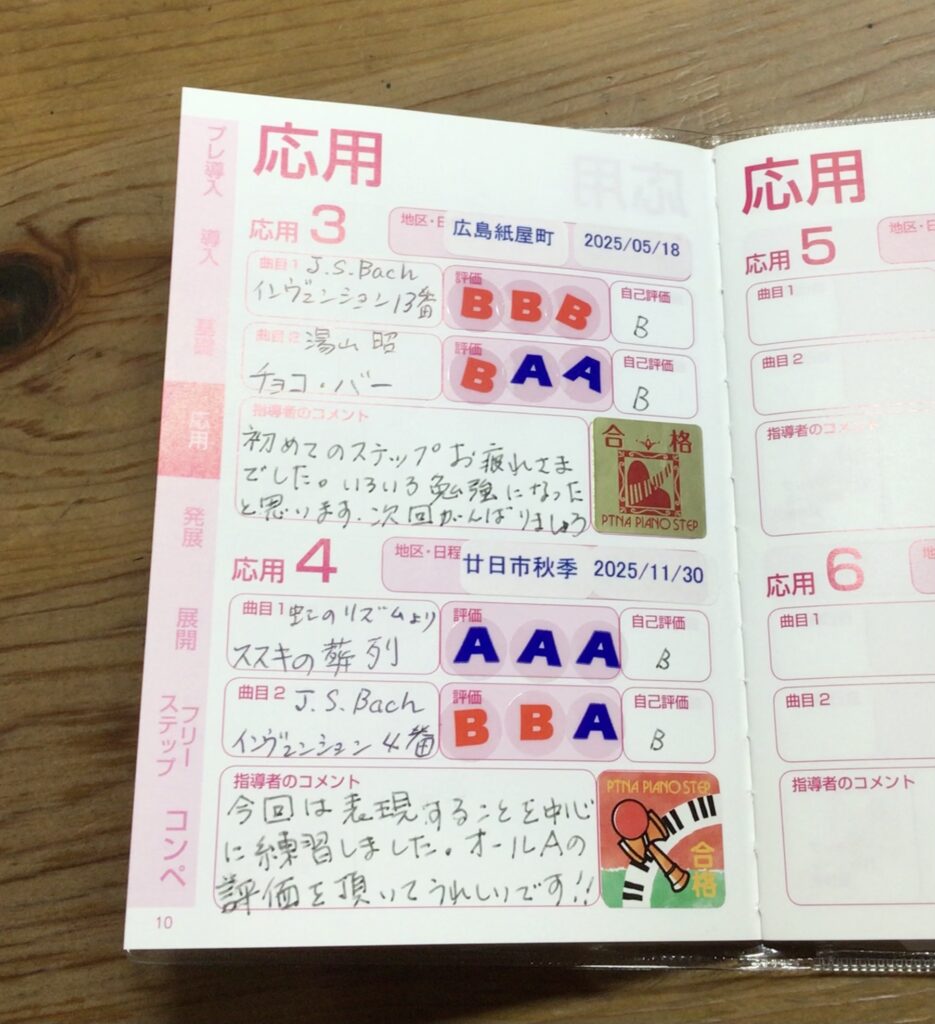 プレ導入
導入
基礎
応用
発展
展開
フリー
ステップ
コンペ
応用
応用3
地区・日
広島紙屋町
2025/05/18
曲目1 J.S.Bach
インヴェンション13番
評価
B B B
自己評価
B
曲目2 湯山 昭
チョコ・バー
評価
B A A
自己評価
B
指導者のコメント
初めてのステップお疲れさま
でした。いろいろ勉強になった
と思います。次回がんばりましょう
合格
PTNA PIANO STEP
応用4
地区・日程
廿日市秋季 2025/11/30
曲目1 虹のリズムより
ススキの葬列
評価
A A A
自己評価
B
曲目2 J.S.Bach
インヴェンション4番
評価
B B A
自己評価
B
指導者のコメント
今回は表現することを中心
に練習しました。オールAの
評価を頂いてうれしいです!!
PTNA PIANO STEP
合格
10
応用
応用5
地区・日
曲目1
曲目2
指導者のコメント
応用6
地
曲目1
曲目2
指導者のコメント